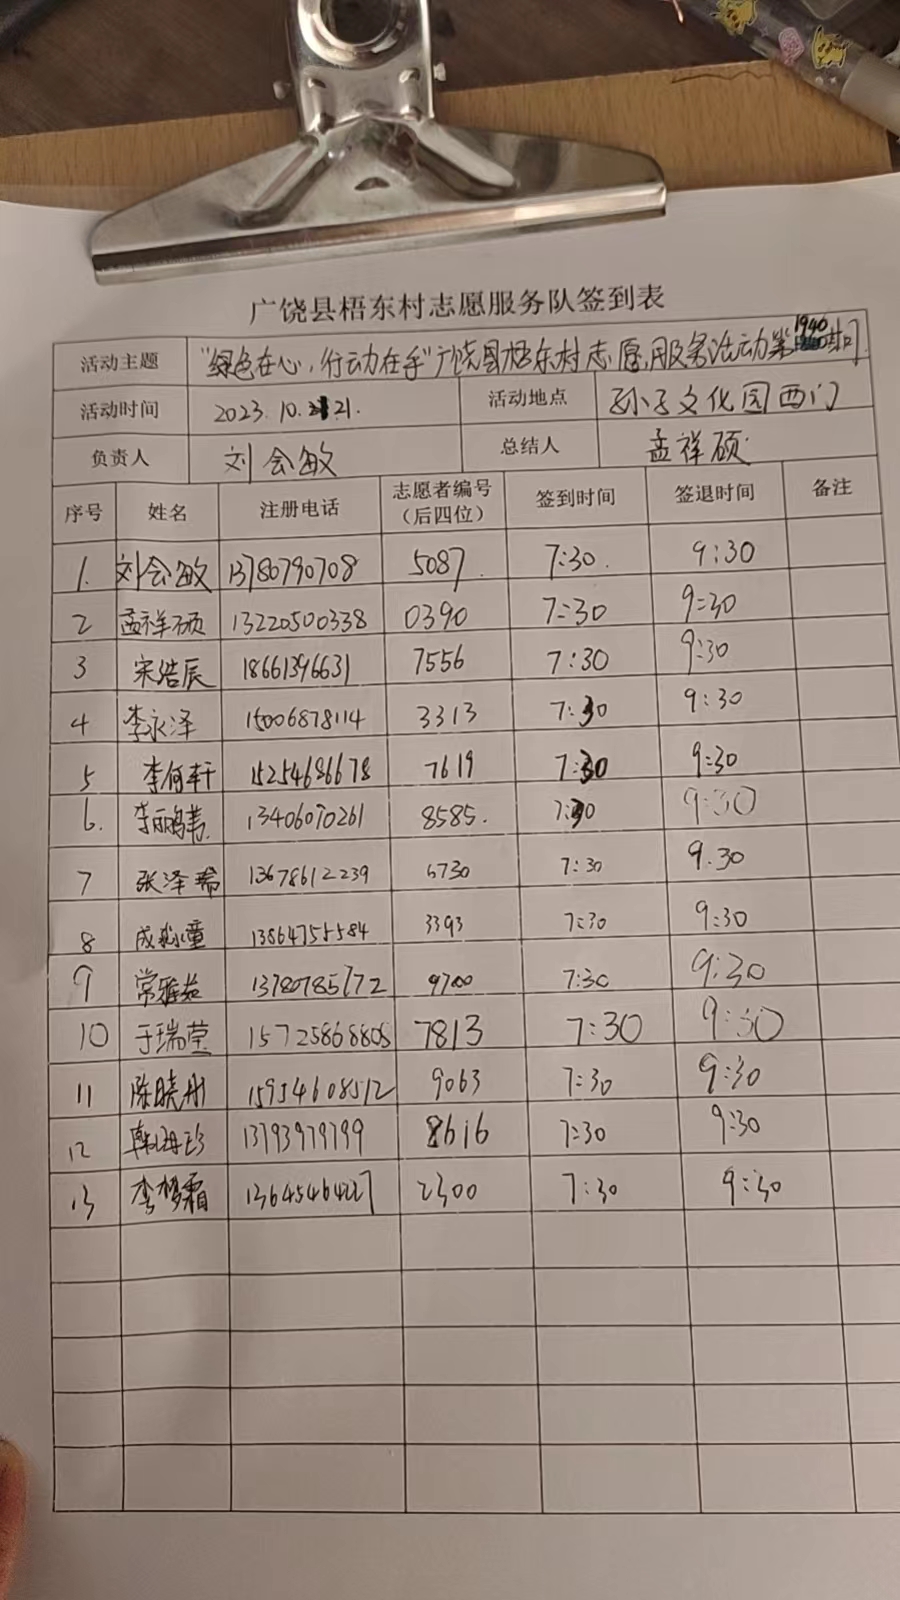 广饶县梧东村志愿服务队签到表
活动主题 "绿色在心，行动在手"广饶县梧东村志愿服务活动第1940期
活动时间 2023.10.21. 活动地点 孙子文化园西门
负责人 刘会敏 总结人 孟祥硕
序号 姓名 注册电话 志愿者编号（后四位） 签到时间 签退时间 备注
1. 刘会敏 13780790708 5087. 7:30. 9:30
2 孟祥硕 13220500338 0390 7:30 9:30
3 宋浩辰 18661396631 7556 7:30 9:30
4 李永泽 15006878114 3313 7:30 9:30
5 李何轩 15254686678 7619 7:30 9:30
6. 李丽鹃 13406070261 8585. 7:30 9:30
7 张泽瑞 13678612239 6730 7:30 9.30
8 成 童 13864755584 3393 7:30 9:30
9 常雅茹 13780785772 9700 7:30 9:30
10 于瑞莹 15725868808 7813 7:30 9:30
11 陈晓彤 15954608512 9063 7:30 9:30
12 韩海珍 13793979799 8616 7:30 9:30
13 李梦霜 13645464227 2300 7:30 9:30